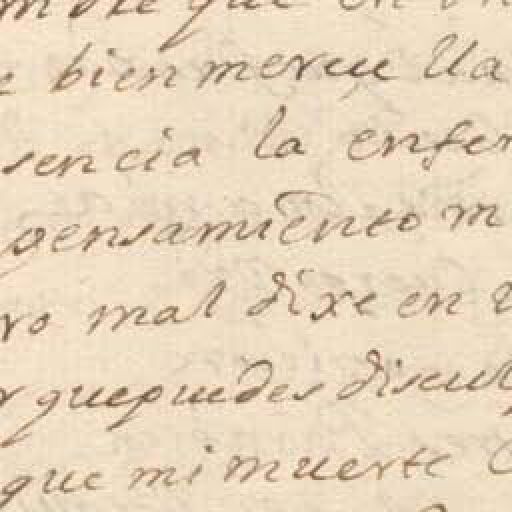 que en
bien merece lla
sencia la enfer
pensamiento m
ro mal dixe en v
r quepuedes discul
que mi muerte